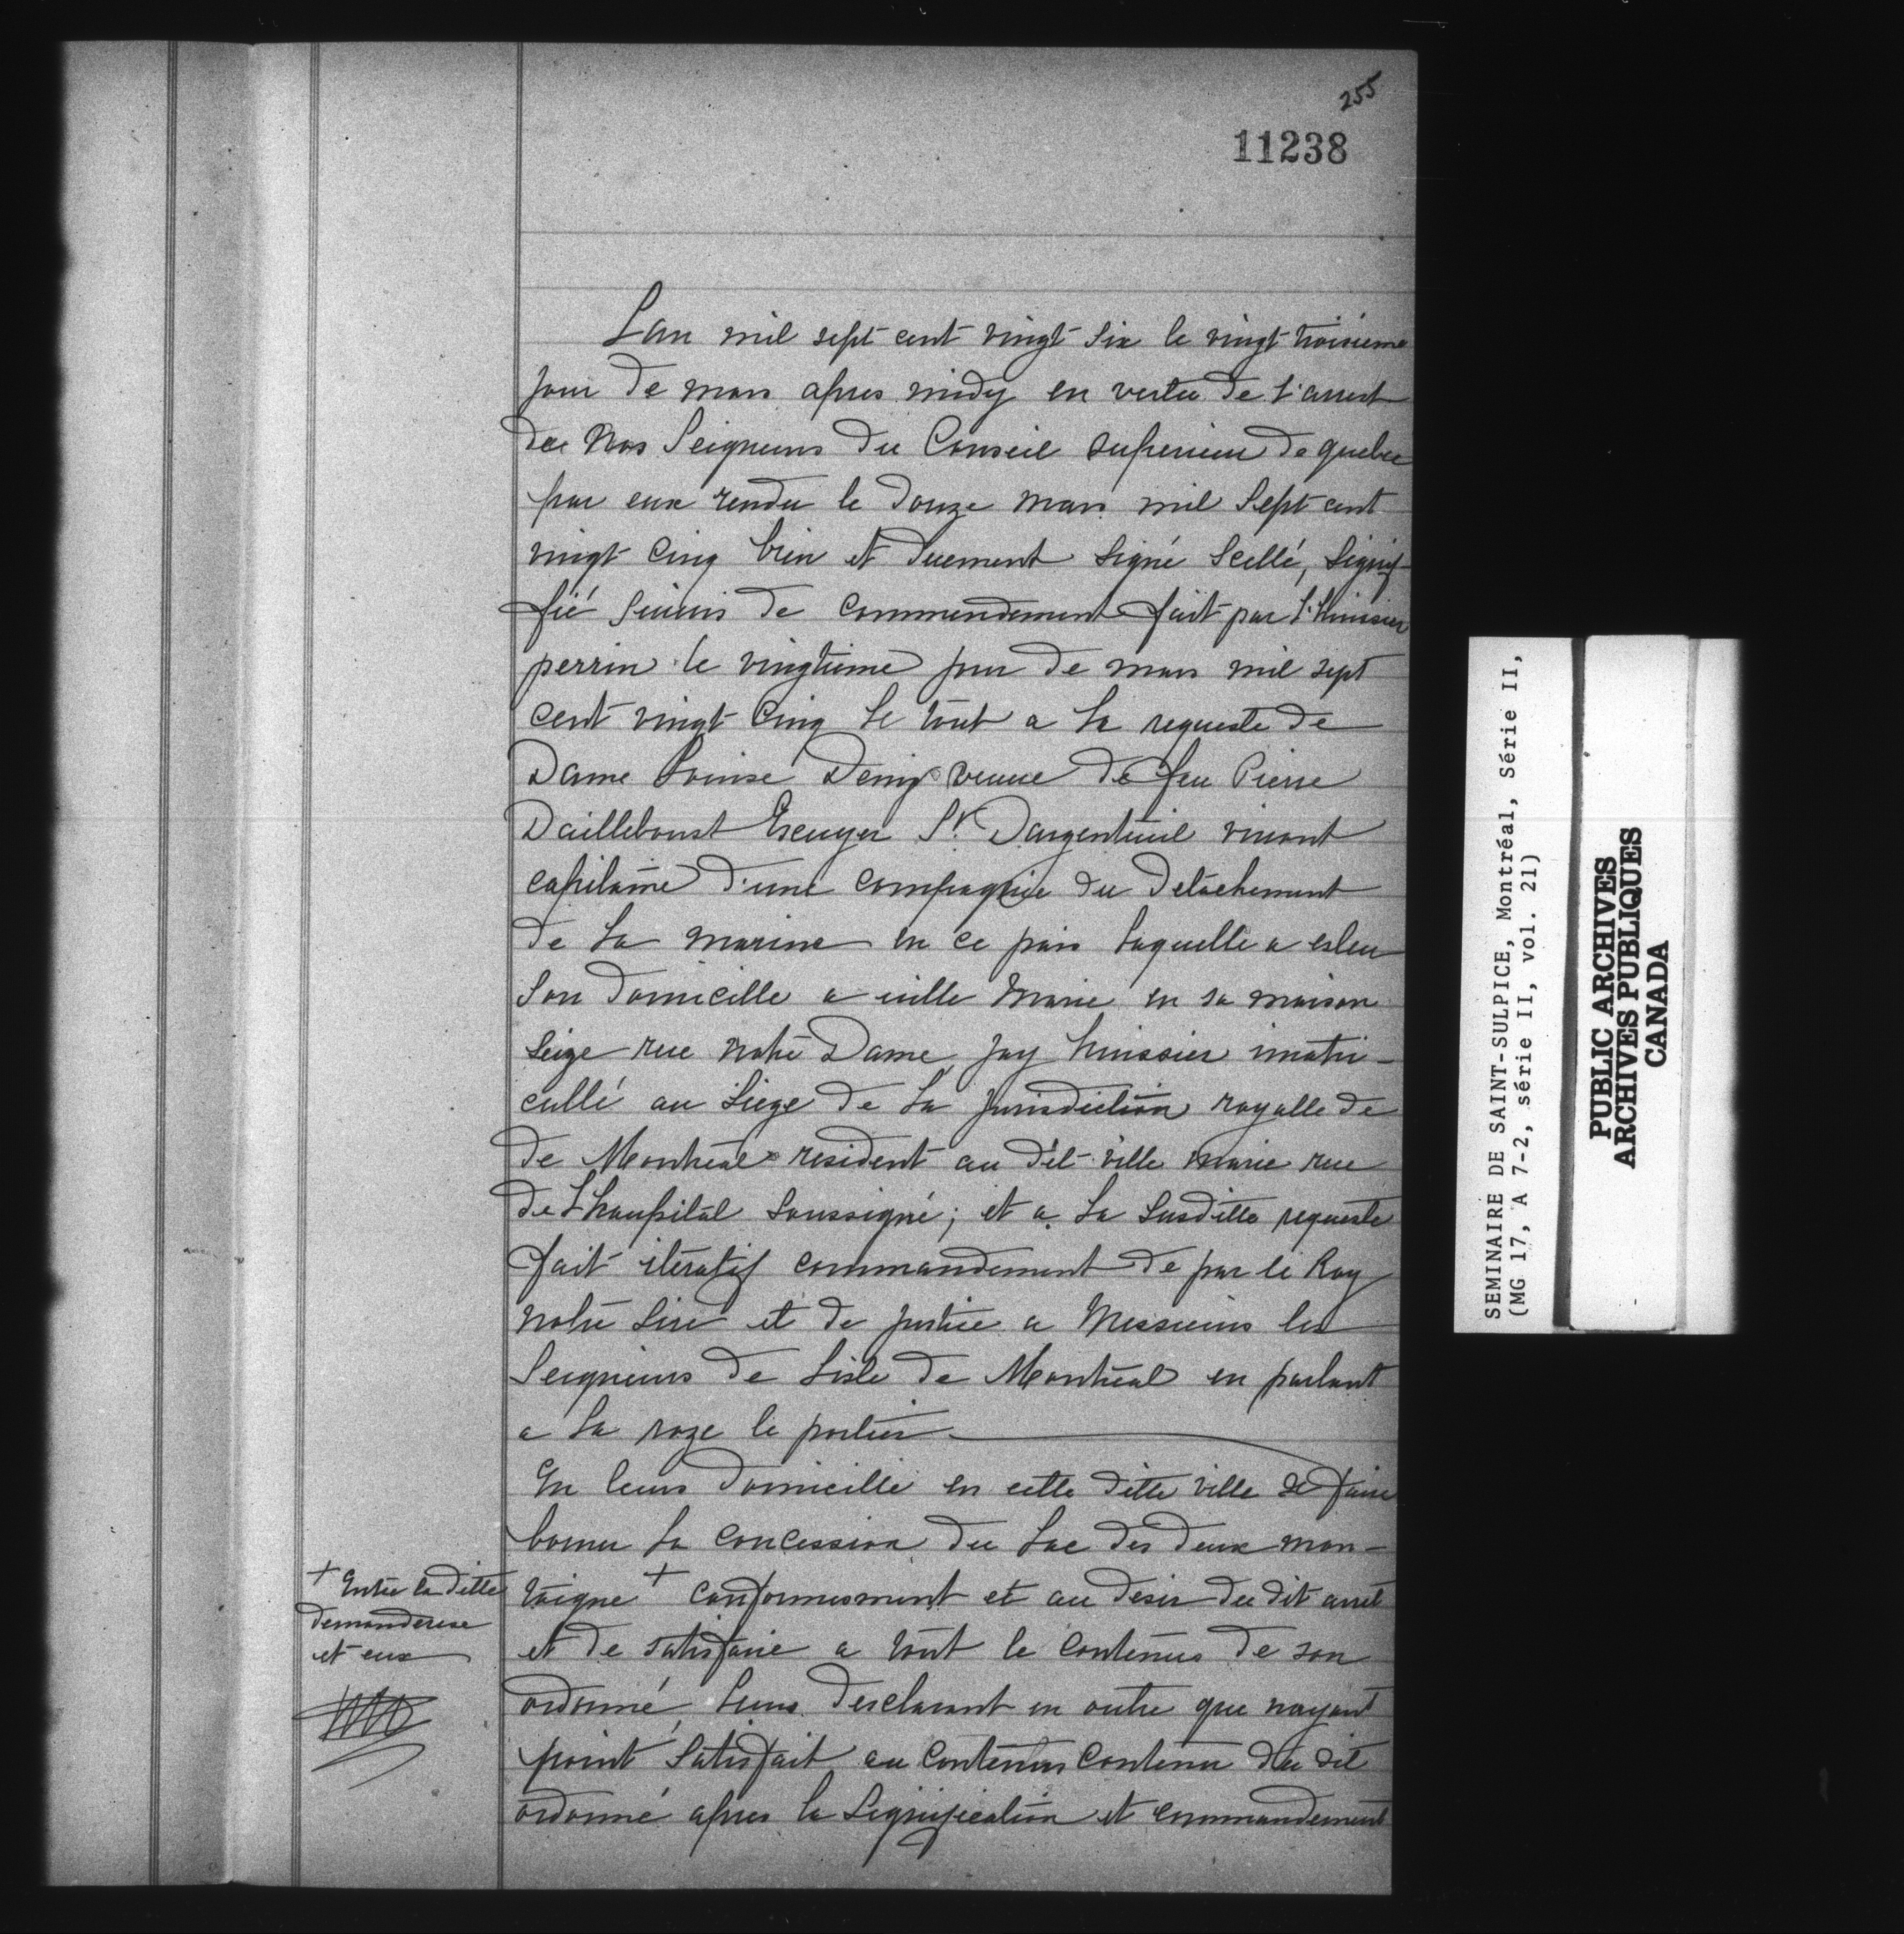 255
11238
Lan mil sept cent vingt six le vingt troisieme
jour de mars apres midy en vertu de l'arrest
de Nos Seigneurs du Conseil superieur de quebec
par eux rendu le douze mars mil sept cent
vingt cinq bien et duement signé scellé, signif-
fié suivis de commendement fait par l'huissier
perrin le vingtieme jour de mars mil sept
cent vingt cinq le tout a la requeste de
Dame Louise Denis veuve de feu Pierre
Dailleboust Ecuyer Sr. Dargenteuil vivant
capitaine d'une compagnie du detachement
de la marine en ce pais laquelle a esleu
son domicille a ville Marie en sa maison
seize rue notre Dame, jay huissier imatri-
cullé au siege de la jurisdiction royalle de
de Montreal resident au dit ville marie rue
de Lhaupital soussigné; et a la susditte requeste
fait iteratif commandement de par le Roy
notre sire et de justice a Messieurs les
Seigneurs de Lisle de Montreal en parlant
a la roze le portier
En leurs domicille en cette ditte ville de faire
borner la concession du Lac des deux mon-
taigne + conformesment et au desir du dit arret
et de satisfaire a tout le contenus de son
ordonné, leurs desclarant en outre que nayant
point satisfait au contenus contenu du dit
ordonné apres la signification et commandement
+ Entre la ditte
demanderese
et eux
SEMINAIRE DE SAINT-SULPICE, Montréal, Série II,
(MG 17, A 7-2, série II, vol. 21)
PUBLIC ARCHIVES
ARCHIVES PUBLIQUES
CANADA